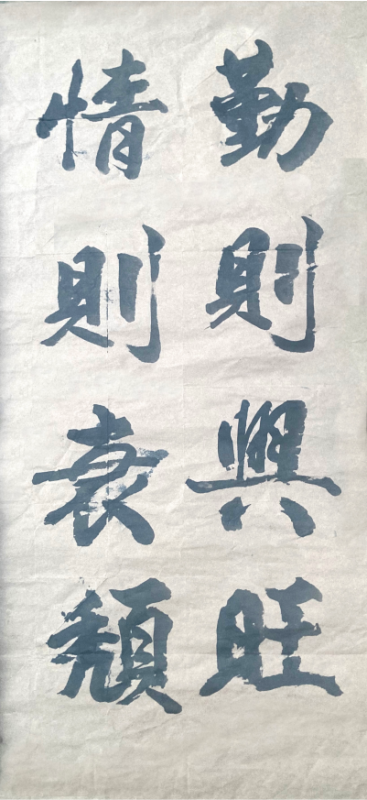 勤則興旺
惰則衰頹